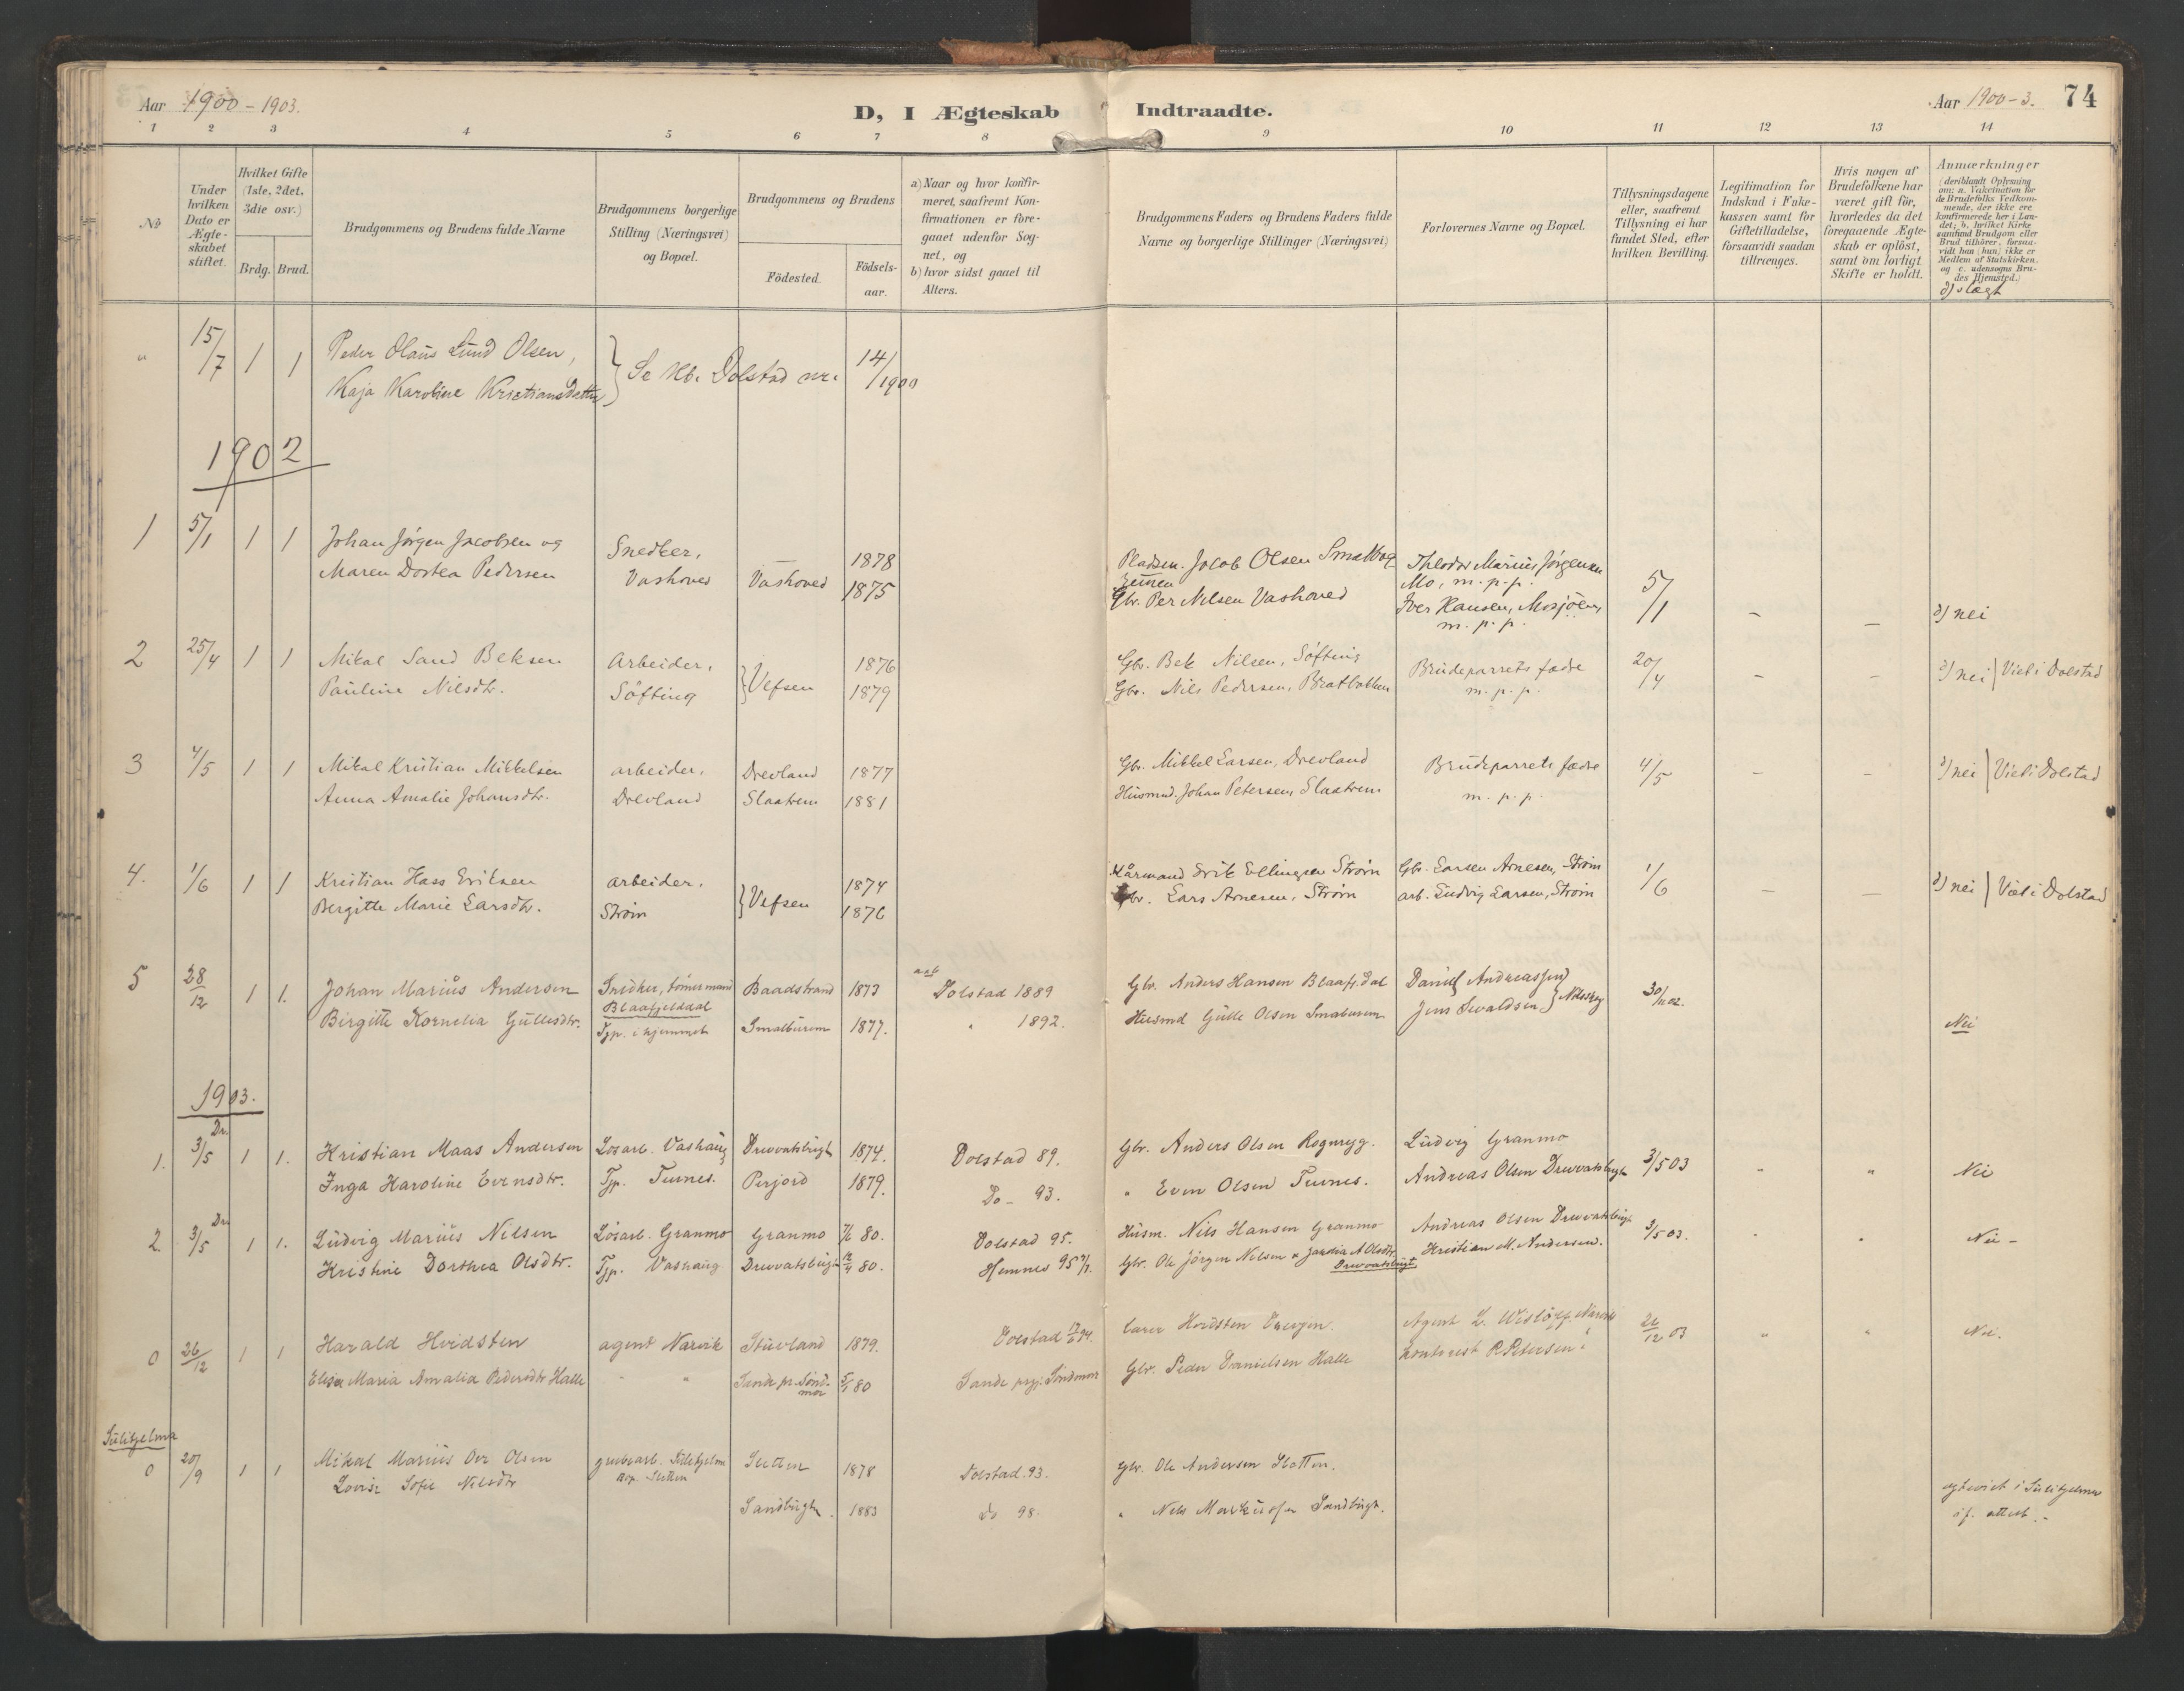 Aar 1900 - 1903.
D, I Ægteskab Indtraadte.
Aar 1900-3. 74
1 2 3 4 5 6 7 8 9 10 11 12 13 14
No
Under hvilken Dato er Ægte-skabet stiftet.
Hvilket Gifte (1ste, 2det, 3die osv.)
Brdg. Brud.
Brudgommens og Brudens fulde Navne
Brudgommens borgerlige Stilling (Næringsvei) og Bopæl.
Brudgommens og Brudens
Födested. Födsels-aar.
a) Naar og hvor konfir-
meret, saafremt Kon-
firmationen er fore-
gaaet udenfor Sog-
net, og
b) hvor sidst gaaet til
Alters.
Brudgommens Faders og Brudens Faders fulde
Navne og borgerlige Stillinger (Næringsvei)
Forlovernes Navne og Bopæl.
Tillysningsdagene
eller, saafremt
Tillysning ei har
fundet Sted, efter
hvilken Bevilling.
Legitimation for
Indskud i Enke-
kassen samt for
Giftetilladelse,
forsaavidt saadan
tiltrænges.
Hvis nogen af
Brudefolkene har
været gift för,
hvorledes da det
foregaaende Ægte-
skab er oplöst,
samt om lovligt
Skifte er holdt.
Anmærkninger
(deriblandt Oplysning
om: a. Vakcination for
de Brudefolks Vedkom-
mende, der ikke ere
konfirmerede her i Lan-
det; b. hvilket Kirke-
samfund Brudgom eller
Brud tilhörer, forsaa-
vidt han (hun) ikke er
Medlem af Statskirken.
og c. udensogns Bru-
des Hjemsted.)
d) slægt
" 15/7 1 1 Peder Olaus Lund Olsen,
Kaja Karoline Kristiansdatter } Se Kb. Dolstad nr. 14/1900
1902
1 5/1 1 1 Johan Jørgen Jacobsen og Snedker, 1878 Pladsm. Jacob Olsen Theodor Marius Jørgensen
Maren Dortea Pedersen Vashoved Vashoved 1875 Mo, m.p.p.
Gbr. Per Nilsen Vashoved Iver Hansen, Mosjøen, m.p.p. 5/1 - - d) nei
2 25/4 1 1 Mikal Sand Beksen Arbeider, } Vefsen 1876 Gbr. Bek Nilsen, Søfting Brudeparrets fædre 20/4 - - d) nei } Viet i Dolstad
Pauline Nilsdtr. Søfting 1879 Gbr. Nils Pedersen, Bratbakken m.p.p.
3 4/5 1 1 Mikal Kristian Mikkelsen arbeider, Drevland 1877 Gbr. Mikkel Larsen, Drevland Brudeparrets fædre 4/5 - - d) nei } Viet i Dolstad
Anna Amalie Johansdtr. Drevland Slaatrem 1881 Husmd. Johan Petersen, Slaatrem m.p.p.
4. 1/6 1 1 Kristian Hass Eriksen arbeider. } Vefsen 1874 Kårmand Erik Ellingsen Strøm Gbr. Larsen Arnesen, Strøm 1/6 - - d) nei } Viet i Dolstad
Bergitte Marie Larsdtr. Strøm 1876 Gbr. Lars Arnesen, Strøm arb. Ludvig Larsen, Strøm
5 28/12 1 1. Johan Marius Andersen Snedker, tømermand Baadstrand 1873 Dolstad 1889 Gbr. Anders Hansen Blaafj.dal Daniel Andreassen 30/11 02.
Blaafjelddal
Birgitte Kornelia Gullesdtr. Tjp. i hjemmet Smalburem 1877. " 1892. Husmd Gulle Olsen Smaburem Jens Sivaldsen Nei
1903.
1. 3/5 Dr. 1 1. Kristian Maas Andersen Løsarb. Vashaug Drevvatsbugt 1874. Dolstad 89. Gbr. Anders Olsen Rognryg. Ludvig Granmo
Inga Haroline Evensdtr. Tjp. Turnes. Perjord 1879. Do - 93. " Even Olsen Turnes. Andreas Olsen Drevvatsbugt 3/5 03 " " Nei
2. 3/5 Dr. 1 1. Ludvig Marius Nilsen Løsarb. Granmo Granmo 7/6 80. Dolstad 95. Husm. Nils Hansen Granmo Andreas Olsen Drevvatsbugt 3/5 03. " " Nei -
Kristine Dorthea Olsdtr. Tjp. Vashaug Drevvatsbugt 12/4 80. Hemnes 95 Gbr. Ole Jørgen Nilsen Kristian M. Andersen.
Drevvatsbugt
0 26/12 1 1 Harald Hvidsten agent Narvik Stuvland 1879. Dolstad 94. Lærer Hvidsten Agent L. Wisløff, Narvik 26/12 03 " " Nei.
Maria Amalia Pedersdtr Halle " " Sande pr. Sønd-mør 5/1 80 Sande prgj. Søndmør Gbr. Peder Danielsen Halle kontorist P. Petersen "
Sulitjelma
0 20/9 1 1 Mikal Marius Olsen grubearb. Sulitjelma Sletten 1878 Dolstad. 93. Gbr. Ole Andersen Slotten.
Lovise Sofie Nilsdtr bop. Sletten
Sandbugt. 1883 do 98. " Nils Markussen Sandbugt. egteviet i Sulitjelma
if. attest. -